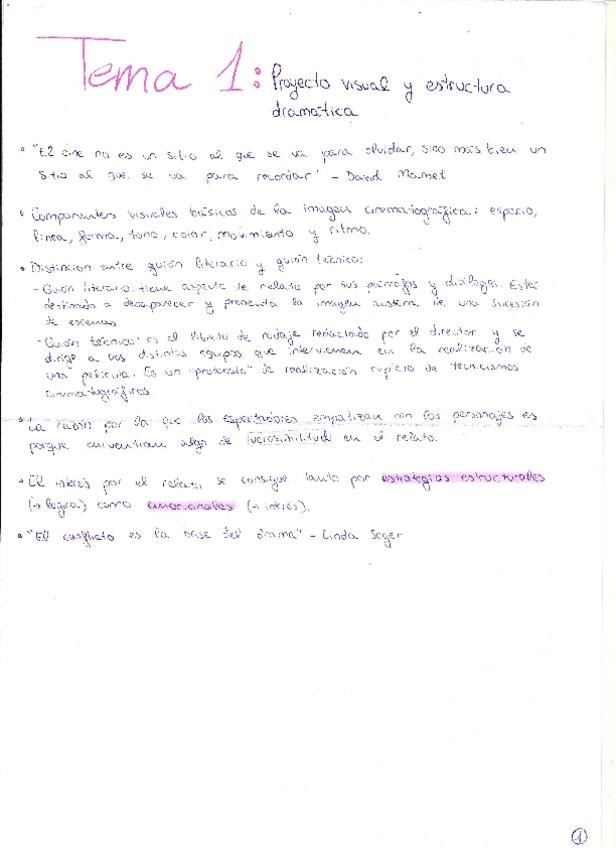 Tema 1: Proyecto visual y estructura
dramática
• "El cine no es un sitio al que se va para olvidar, sino más bien un
sitio al que se va para recordar" - David Mamet
• Componentes visuales básicos de la imagen cinematográfica: espacio,
línea, forma, tono, color, movimiento y ritmo.
• Distinción entre guión literario y guión técnico:
- Guión literario: tiene aspecto de relato por sus párrafos y diálogos. Está
destinado a desaparecer y presenta la imagen de una sucesión
de escenas
- Guión técnico: es el libreto de rodaje redactado por el director y se
dirige a los distintos equipos que intervienen en la realización de
una película. Es un "protocolo" de realización repleto de tecnicismos
cinematográficos.
• La razón por la que los espectadores empatizan con los personajes es
porque encuentran algo de verosimilitud en el relato.
• El interés por el relato se consigue tanto por estrategias estructurales
(→ lógica) como emocionales (→ interés).
• "El conflicto es la base del drama" - Linda Seger
1